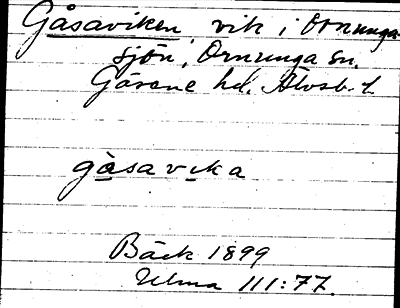 Gåsaviken, vik i Ornunga-
sjön, Ornunga sn.
Gäsene hd. Älvsb. l.
gåsavıka
Bäck 1899
Ulma 111:77.